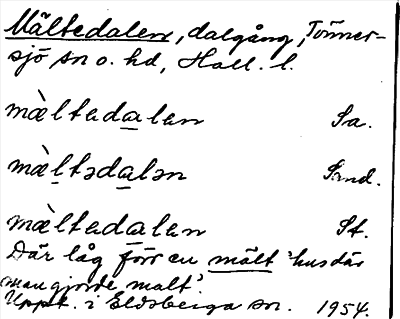 Mältedalen, dalgång, Tönner-
sjö sn o. hd, Hall. l.
mæ̀ltadalan Sa.
mæ̀ltədalən Sand.
mæ̀ltadalan St.
Där låg förr en mält 'hus där
man gjorde malt'.
Uppt. i Eldsberga sn. 1954.